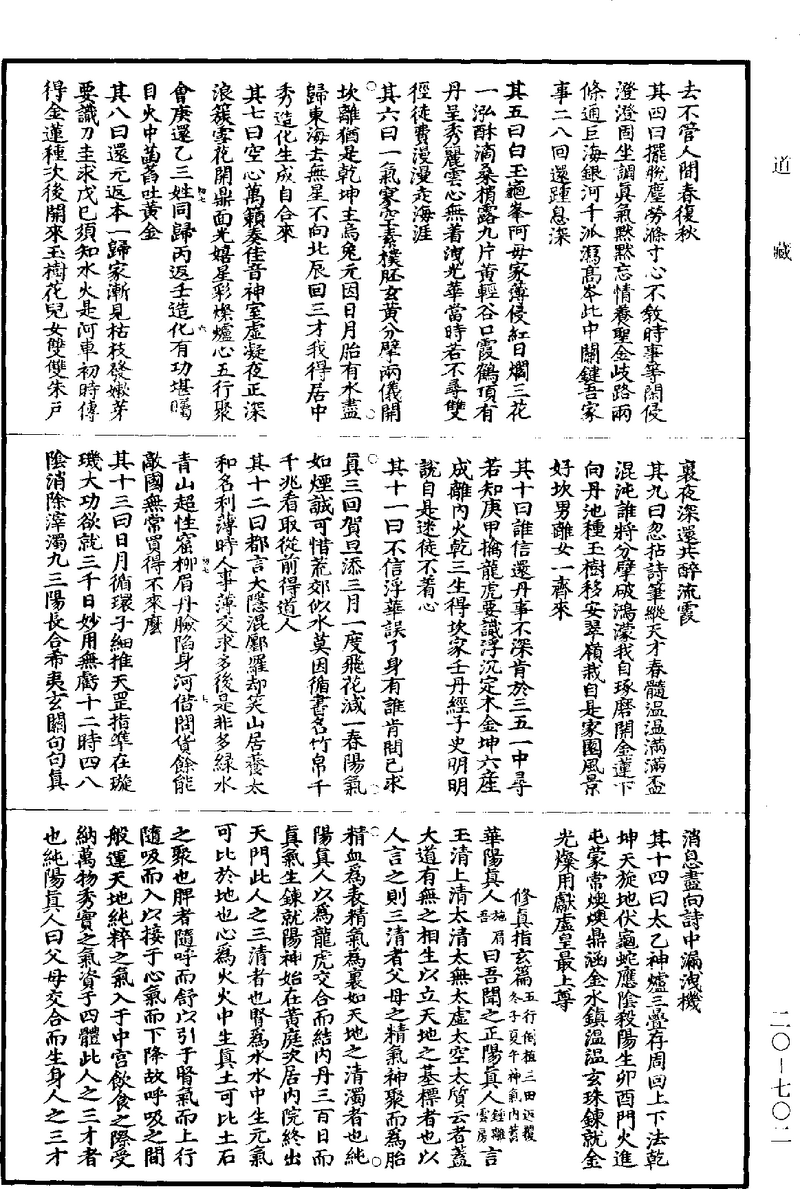 道藏
去不管人間春復秋
其四曰擺脫塵勞滌寸心不敘時事等閑侵
澄澄周坐調真氣默默忘情養聖金歧路兩
條通巨海銀河千派瀉高岑此中關鍵吾家
事二八回還踵息深
其五曰白玉龜峯阿母家薄侵紅日爛三花
一泓酥滴桑梢露九片黃輕谷口霞鶴頂有
丹呈秀麗雲心無着洩光華當時若不尋雙
徑徒費漫漫走海涯
其六曰一氣寥空素樸胚玄黃分擘兩儀開
坎離猶是乾坤主烏兔元因日月胎有水盡
歸東海去無星不向北辰回三才我得居中
秀造化生成自合來
其七曰空心萬籟奏佳音神室虛凝夜正深
浪簇雪花開鼎面光嬉星彩燦爐心五行聚
會庚還乙三姓同歸丙返壬造化有功堪矚
目火中菡萏吐黃金
其八曰還元返本一歸家漸見枯枝發嫩芽
要識刀圭求戊己須知水火是河車初時傳
得金蓮種次後開來玉樹花兒女雙雙朱戶
裏夜深還共醉流霞
其九曰忽拈詩筆縱天才春髓溫溫滿滿盃
混沌誰將分擘破鴻濛我自琢磨開金蓮下
向丹池種玉樹移安翠嶺栽自是家園風景
好坎男離女一齊來
其十曰誰信還丹事不深肯於三五一中尋
若知庚甲擒龍虎要識浮沉定木金坤六産
成離內火乾三生得坎家壬丹經子史明明
說自是迷徒不着心
其十一曰不信浮華誤了身有誰肯問己求
真三回賀旦添三月一度飛花減一春陽氣
如煙誠可惜荒郊似水莫因循書名竹帛千
千兆看取從前得道人
其十二曰都言大隱混鄽羅却笑山居養太
和名利薄時人事薄交求多後是非多緑水
青山超性窟柳眉丹臉陷身河借問貨餘能
敵國無常買得不來麽
其十三曰日月循環子細推天罡指準在璇
璣大功欲就三千日妙用無虧十二時四八
陰消除滓濁九三陽長合希夷玄關句句真
消息盡向詩中漏洩機
其十四曰太乙神爐三疊存周回上下法乾
坤天旋地伏龜蛇應陰殺陽生卯酉門火進
屯蒙常煥煥鼎涵金水鎮溫溫玄珠鍊就金
光燦用獻虛皇最上尊
修真指玄篇 五行倒植三田返覆冬子夏午神氣內蓄
華陽真人施肩吾曰吾聞之正陽真人鍾離雲房言
玉清上清太清太無太虛太空太質云者蓋
大道有無之相生以立天地之基標者也以
人言之則三清者父母之精氣神聚而為胎
精血為表精氣為裏如天地之清濁者也純
陽真人以為龍虎交合而結內丹三百日而
真氣生鍊就陽神始在黃庭次居內院終出
天門此人之三清者也腎為水水中生元氣
可比於地也心為火火中生真土可比土石
之聚也脾者隨呼而舒以引于腎氣而上行
隨吸而入以接于心氣而下降故呼吸之間
般運天地純粹之氣入于中宮飲食之際受
納萬物秀實之氣資于四體此人之三才者
也純陽真人曰父母交合而生身人之三才
二〇-七〇二